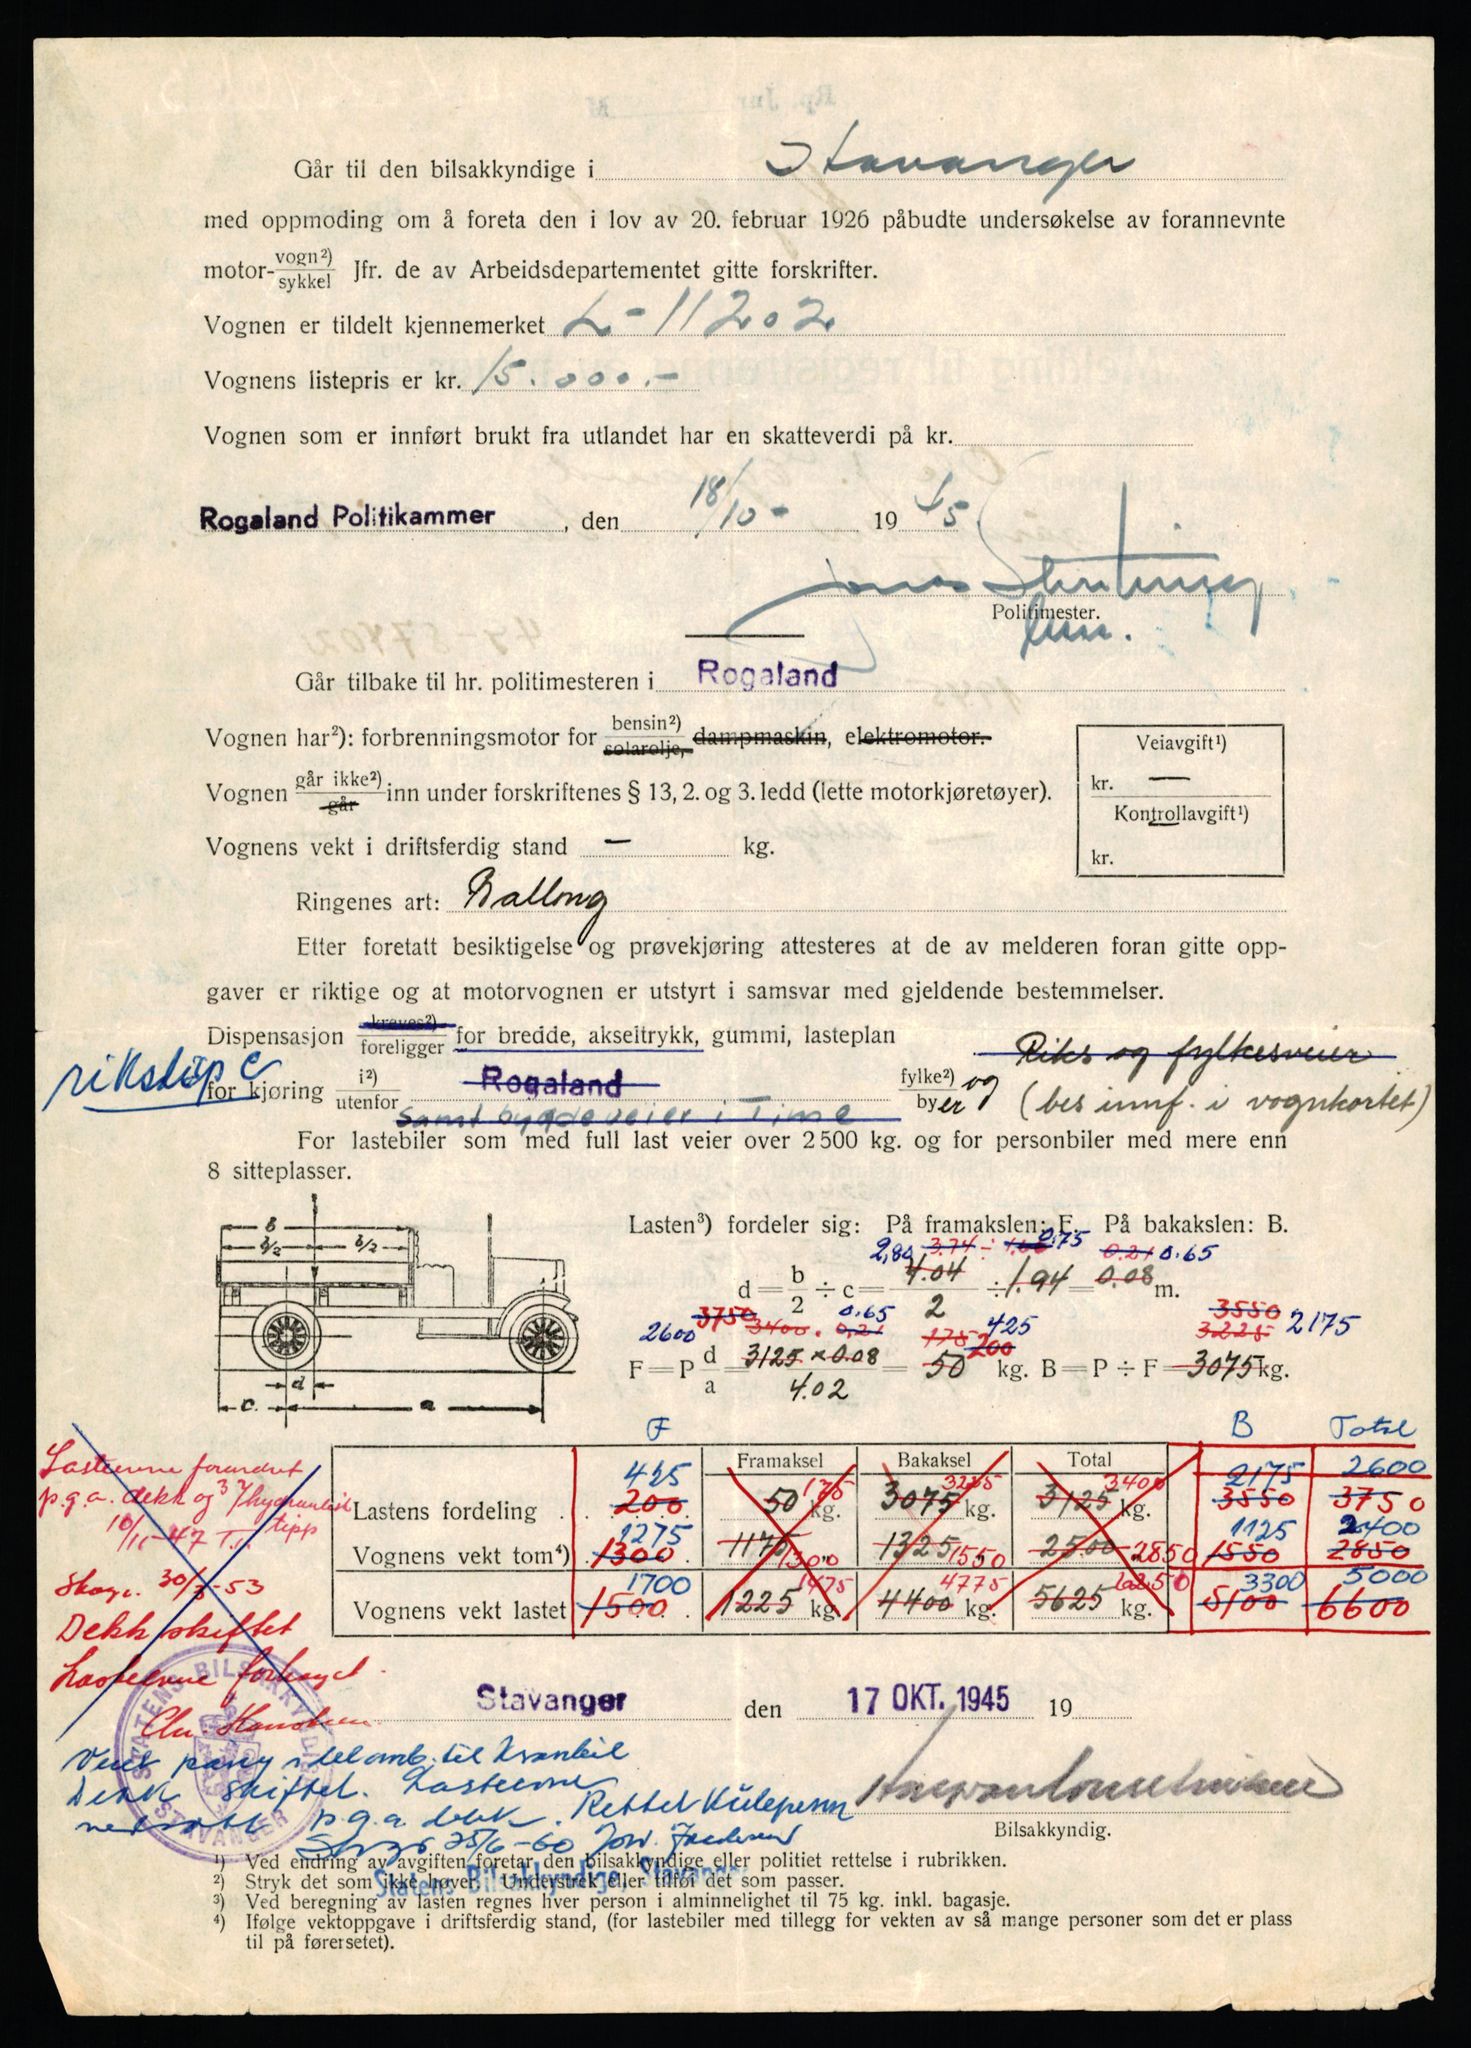 Går til den bilsakkyndige i Stavanger
med oppmoding om å foreta den i lov av 20. februar 1926 påbudte undersøkelse av forannevnte
motor-vogn²)/sykkel Jfr. de av Arbeidsdepartementet gitte forskrifter.
Vognen er tildelt kjennemerket L-11202
Vognens listepris er kr. 15.000.-
Vognen som er innført brukt fra utlandet har en skatteverdi på kr.
Rogaland Politikammer, den 18/10- 19 45
Politimester.
Går tilbake til hr. politimesteren i Rogaland
Vognen har²): forbrenningsmotor for bensin²)/solarolje, dampmaskin, elektromotor.
Veiavgift¹)
kr. —
Vognen går ikke²)/går inn under forskriftenes § 13, 2. og 3. ledd (lette motorkjøretøyer).
Kontrollavgift¹)
kr.
Vognens vekt i driftsferdig stand — kg.
Ringenes art: Ballong
Etter foretatt besiktigelse og prøvekjøring attesteres at de av melderen foran gitte opp-
gaver er riktige og at motorvognen er utstyrt i samsvar med gjeldende bestemmelser.
Dispensasjon kreves²)/foreligger for bredde, akseltrykk, gummi, lasteplan Riks og fylkesveier
for kjøring i²)/utenfor Rogaland fylke²)/byer og (bes innf. i vognkortet)
samt bygdeveier i Time
For lastebiler som med full last veier over 2500 kg. og for personbiler med mere enn
8 sitteplasser.
b
b/2 b/2
d
c. a
Lasten³) fordeler sig: På framakslen: F. På bakakslen: B.
2,80 3.74 ÷ 1.60 0,75 0.21 0.65
d = b/2 ÷ c = 4.04/2 ÷ 1.94 = 0.08 m.
3750 0.65 425 3550
2600 3400 . 0,21 175 200 3225 2175
F = P d/a = 3125 x 0.08/4.02 = 50 kg. B = P ÷ F = 3075 kg.
F B Total
Framaksel Bakaksel Total
425 175 3225 3400 2175 2600
Lastens fordeling 200 50 kg. 3075 kg. 3125 kg. 3550 3750
1275 1125 2400
Vognens vekt tom⁴) 1300 1175 1300 1325 1550 2500 2850 1550 2850
1700 1475 4775 6250 3300 5000
Vognens vekt lastet 1500 1225 kg. 4400 kg. 5625 kg. 5100 6600
Lasteevne forandret
p.g.a. dekk og hydraulisk
tipp
10/11-47
30/3-53
Dekk skiftet
Lasteevne forhøyet
Stavanger den 17 OKT. 1945 19
STATENS BILSAKKYNDIGE
STAVANGER
til Kranbil
Dekk skiftet. Lasteevne
nedsatt p.g.a. dekk.
25/6-60
Bilsakkyndig.
Statens Bilsakkyndige, Stavanger
¹) Ved endring av avgiften foretar den bilsakkyndige eller politiet rettelse i rubrikken.
²) Stryk det som ikke høver. Understrek eller tilfør det som passer.
³) Ved beregning av lasten regnes hver person i alminnelighet til 75 kg. inkl. bagasje.
⁴) Ifølge vektoppgave i driftsferdig stand, (for lastebiler med tillegg for vekten av så mange personer som det er plass
til på førersetet).